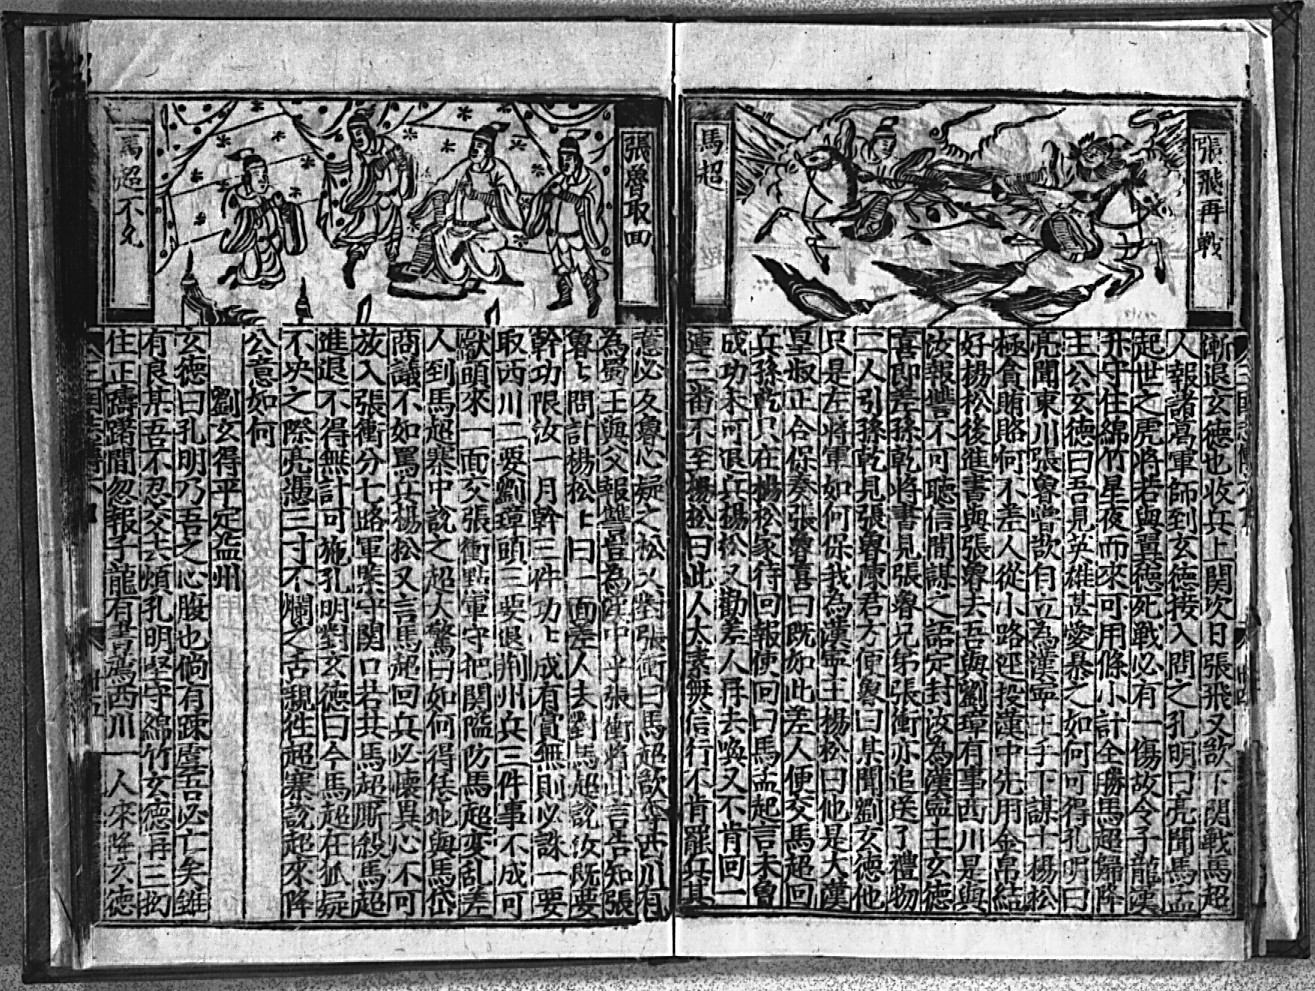 張飛再戰
馬超
漸退玄德也收兵上関次日張飛又欲下関戰馬超
人報諸葛軍師到玄德接入問之孔明曰亮聞馬孟
起世之虎將若與翼德死戰必有一傷故令子龍漢
升守住綿竹星夜而來可用條小計全勝馬超歸降
主公玄德曰吾見英雄甚愛慕之如何可得孔明曰
亮聞東川張魯曾欲自立為漢寧王手下謀士楊松
極貪賄賂何不差人從小路逕投漢中先用金帛結
好楊松後進書與張魯去吾與劉璋有事西川是與
汝報讐不可聽信間諜之語定封汝為漢寧王玄德
喜即差孫乾將書見張魯兄弟張衛亦追送了禮物
二人引孫乾見張魯陳君方便魯曰某聞劉玄德他
只是左將軍如何保我為漢寧王楊松曰他是大漢
皇叔正合保奏張魯喜曰既如此差人便交馬超回
兵孫乾只在楊松家待回報使回曰馬孟起言未魯
成功未可退兵楊松又勸差人再去喚又不肯回一
連三番不至楊松曰此人大素無信行不肯罷兵其
張魯取回
馬超不允
意必反魯心疑之松又對張衛曰馬超欲奪西川有
為蜀王與父報讐豈為漢中乎張衛將此言告知張
魯上問計楊松上曰一面差人去對馬超說汝既要
幹功限汝一月幹三件功上成有賞無則必誅一要
取西川二要劉璋頭三要退荆州兵三件事不成可
獻頭來一面交張衛點軍守把関隘防馬超変乱差
人到馬超寨中說之超大驚曰如何得恁地與馬岱
商議不如罵兵楊松又言馬超回兵必懷異心不可
放入張衛分七路軍業守関口若共馬超厮殺馬超
進退不得無計可施孔明對玄德曰今馬超在狐疑
不决之際亮憑三寸不爛之舌親往超寨說超來降
公意如何
劉玄得平定益州
玄德曰孔明乃吾之心腹也倘有疎虞吾必亡矣雖
有良某吾不忍父去頻孔明坚守綿竹玄德再三扚
住正躊躇間忽報子龍有書薦西川一人來降玄德